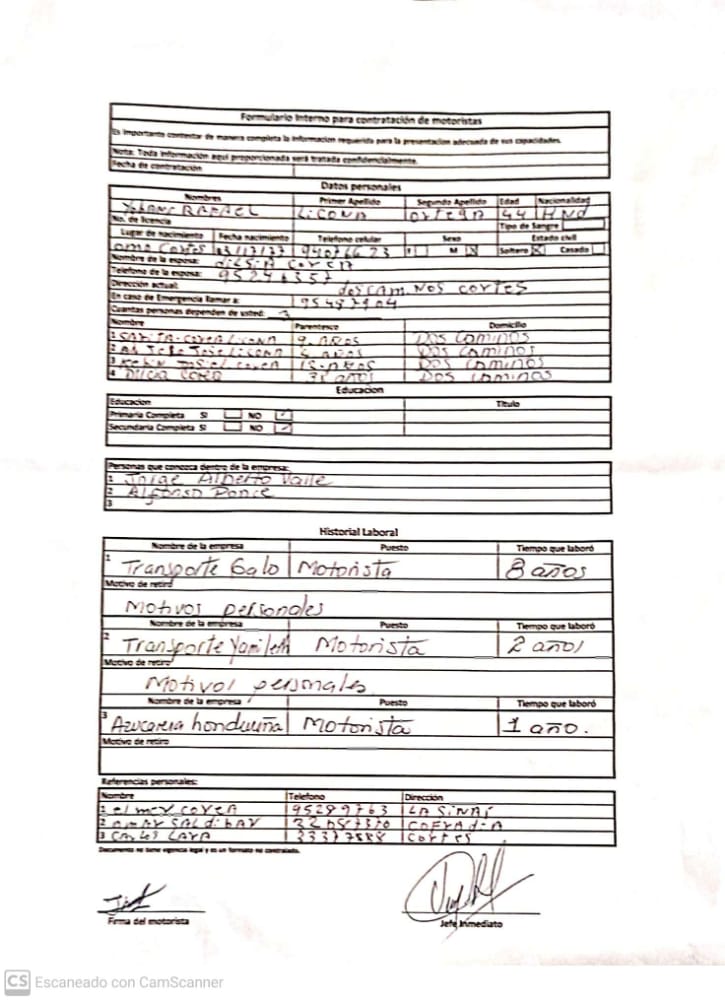 Formulario Interno para contratación de motoristas
Es importante contestar de manera completa la informacion requerida para la presentacion adecuada de sus capacidades.
Nota: Toda información aquí proporcionada será tratada confidencialmente.
Fecha de contratación
Datos personales
Nombres Primer Apellido Segundo Apellido Edad Nacionalidad
RAFAEL LICONA ORTEGA 44 HND
No. de licencia Tipo de Sangre
Lugar de nacimiento Fecha nacimiento Telefono celular Sexo Estado civil
Cortes 94076623 F M X Soltero X Casado
Nombre de la esposa:
Telefono de la esposa: 95246357
Dirección actual: dos caminos cortes
En caso de Emergencia llamar a: 95487904
Cuantas personas dependen de usted: 3
Nombre Parentesco Domicilio
1 9 AÑOS DOS CAMINOS
2 AÑOS DOS CAMINOS
3 AÑOS DOS CAMINOS
4 años DOS CAMINOS
Educacion
Educacion Titulo
Primaria Completa SI NO
Secundaria Completa SI NO
Personas que conozca dentro de la empresa:
1 Jorge Alberto Valle
2 Alfonso Ponce
3
Historial Laboral
Nombre de la empresa Puesto Tiempo que laboró
1 Transporte Galo Motorista 8 años
Motivo de retiro
Motivos personales
Nombre de la empresa Puesto Tiempo que laboró
2 Transporte Yamileth Motorista 2 años
Motivo de retiro
Motivos personales
Nombre de la empresa Puesto Tiempo que laboró
3 Azucarera hondureña Motorista 1 año.
Motivo de retiro
Referencias personales:
Nombre Telefono Dirección
1 elmer 95289763 LA SINAI
2 OMAR SALDIBAR COFRADIA
3 CARLOS LARA 33377888 CORTES
Documento no tiene vigencia legal y es un formato no controlado.
Firma del motorista Jefe Inmediato
CS Escaneado con CamScanner